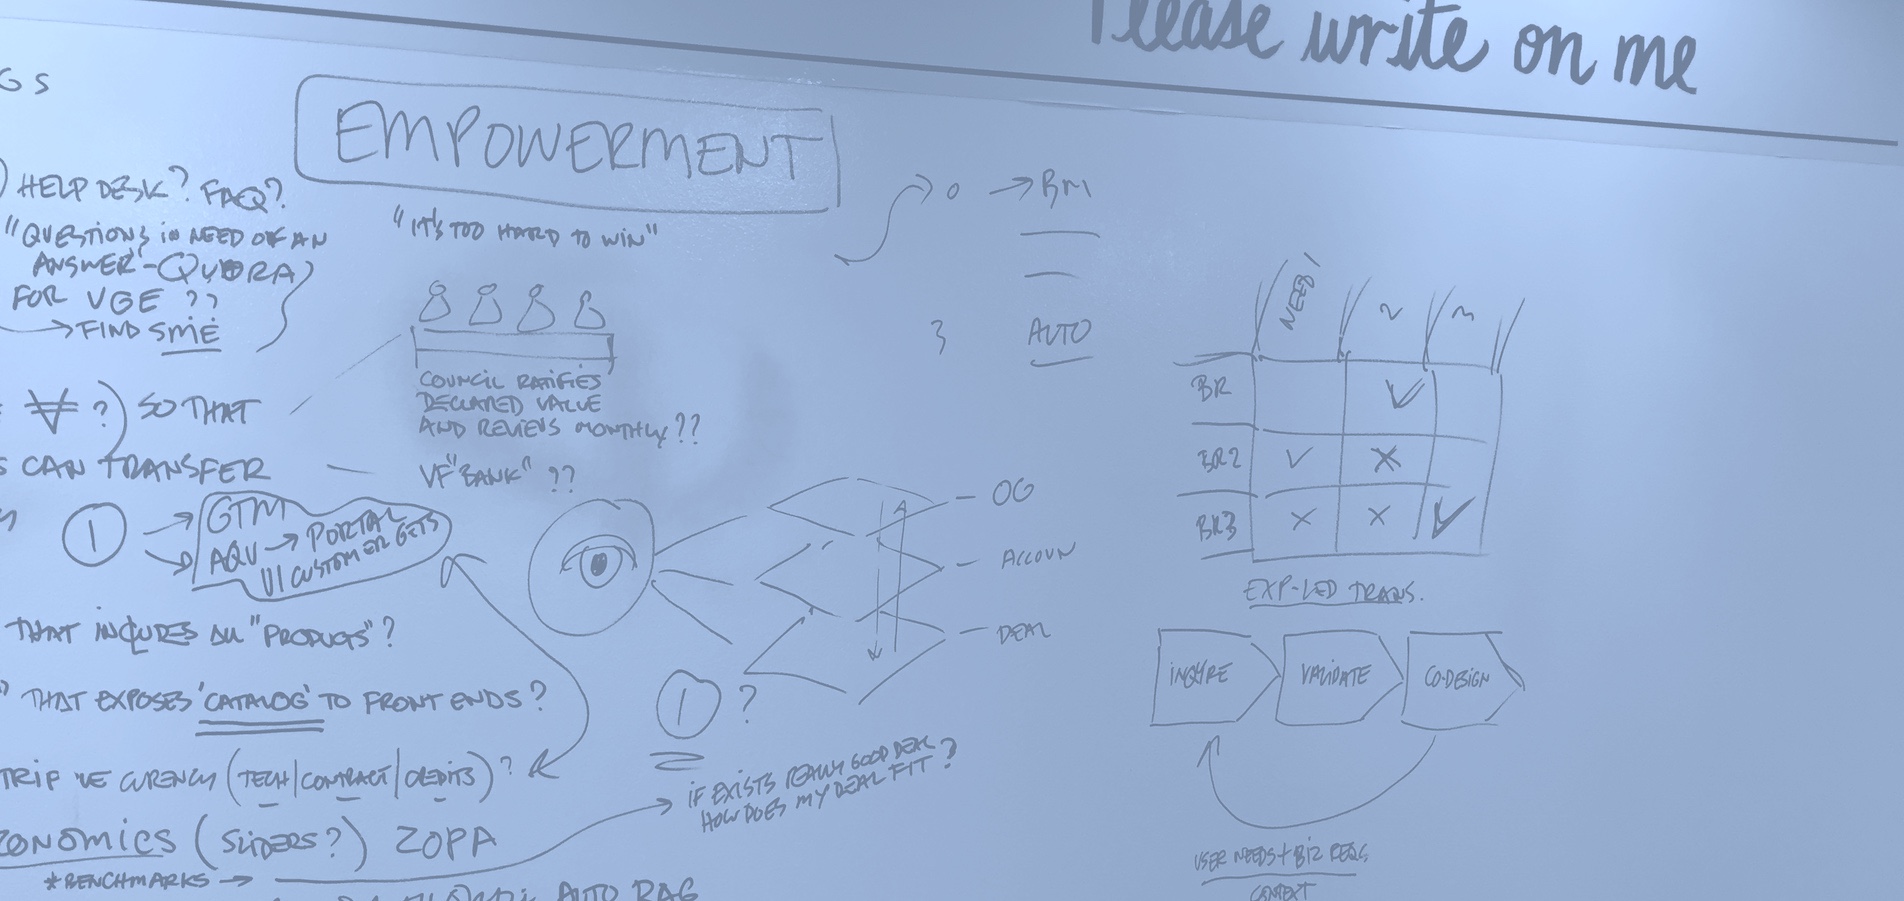 Please write on me
GS
EMPOWERMENT
HELP DESK? FAQ?
"QUESTIONS in NEED OF AN
ANSWER"-QUORA)
FOR VGE ??
→FIND SME
"IT'S TOO HARD TO WIN"
COUNCIL RATIFIES
DECLARED VALUE
AND REVIEWS MONTHLY??
VF "BANK" ??
?) SO THAT
CAN TRANSFER
1
GTM
→ PORTAL
CUSTOMER GETS
THAT INCLUDES ALL "PRODUCTS"?
THAT EXPOSES 'CATALOG' TO FRONT ENDS?
(TECH|CONTRACT|CREDITS)?
ONOMICS (SLIDERS?) ZOPA
*BENCHMARKS →
AUTO RAG
0 → BM
3 AUTO
OG
ACCOUN
DEAL
1 ?
IF EXISTS REALLY GOOD DEAL
HOW DOES MY DEAL FIT?
NEED 1 2 3
BR ✓
BR2 ✓ X
BR3 X X ✓
EXP-LED TRANS.
INQUIRE VALIDATE CO-DESIGN
USER NEEDS + BIZ REQS
CONTEXT